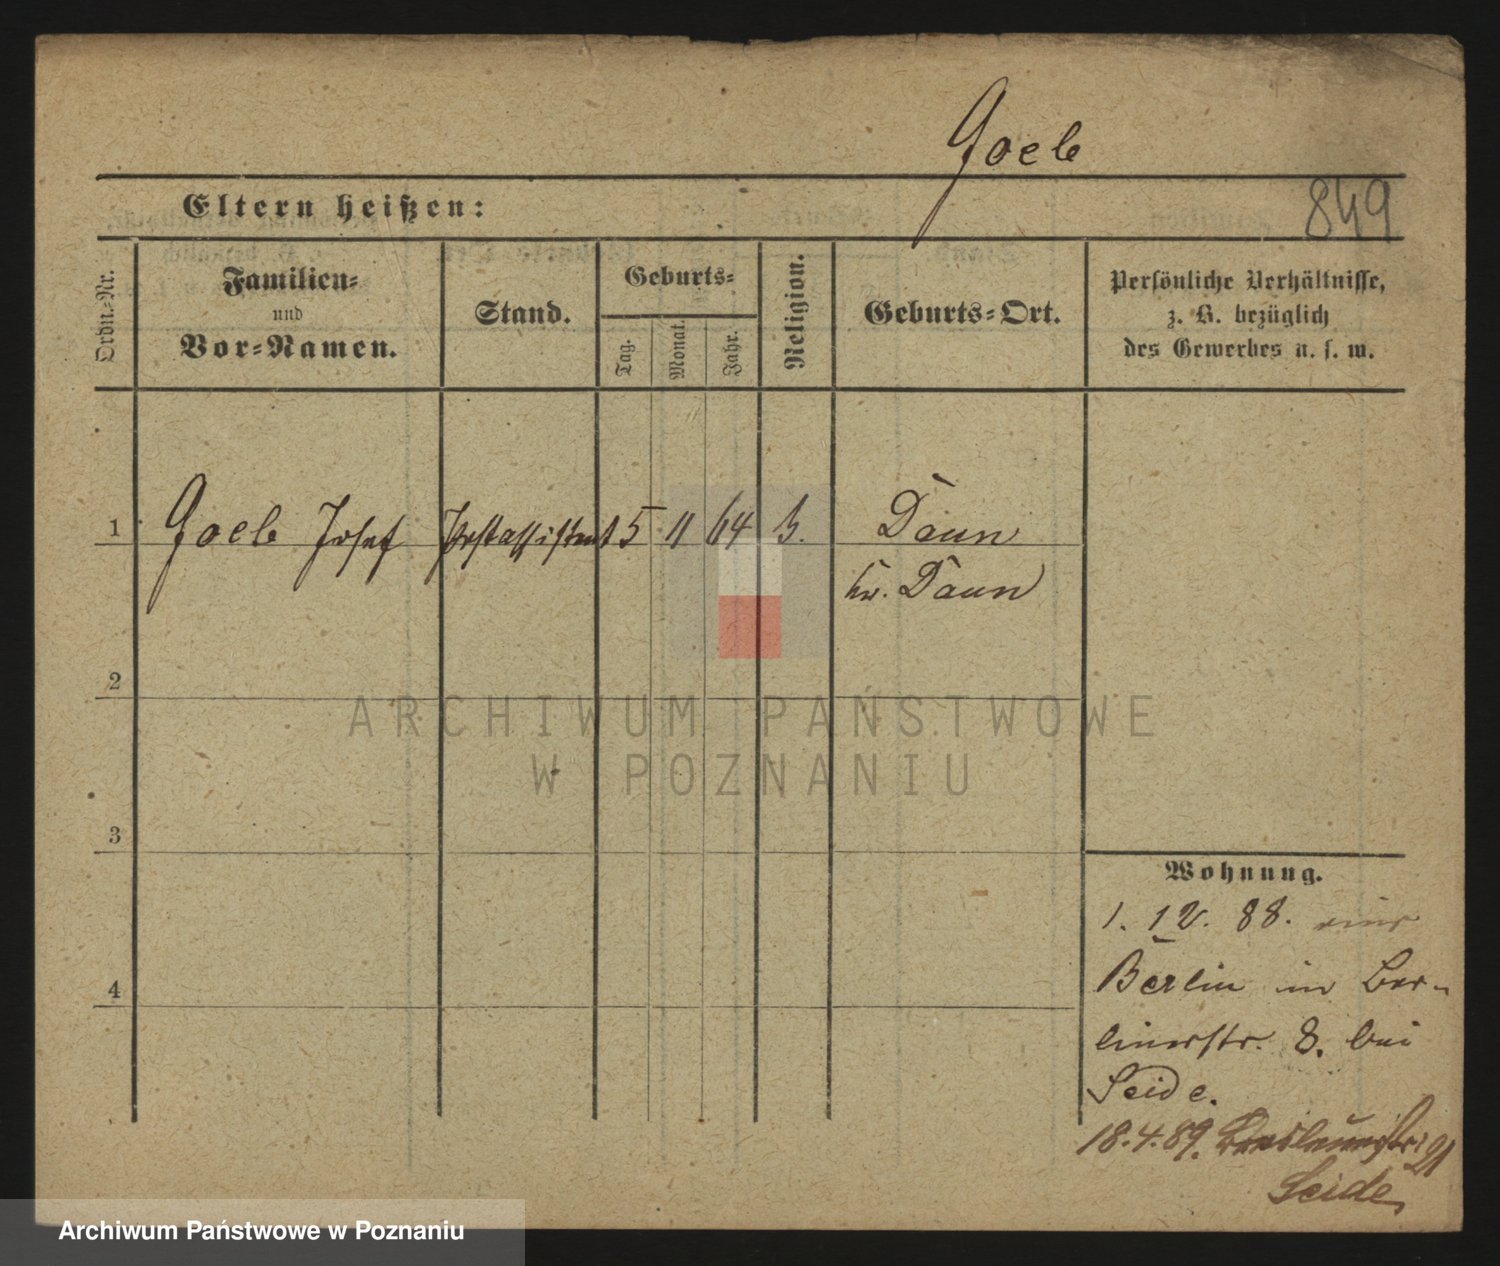 Goeb
Eltern heißen:
849
Ordn.-Nr.
Familien-
und
Vor-Namen.
Stand.
Geburts-
Tag.
Monat.
Jahr.
Religion.
Geburts-Ort.
Persönliche Verhältnisse,
z. B. bezüglich
des Gewerbes u. s. w.
1 Goeb Josef Postassistent 5 11 64 Daun
Kr. Daun
2
ARCHIWUM PAŃSTWOWE
W POZNANIU
3
4
Wohnung.
1. 12. 88. aus
Berlin in Ber-
linerstr. 8. bei
Seide.
18.4.89. Breslauerstr. 21
Seide,
Archiwum Państwowe w Poznaniu